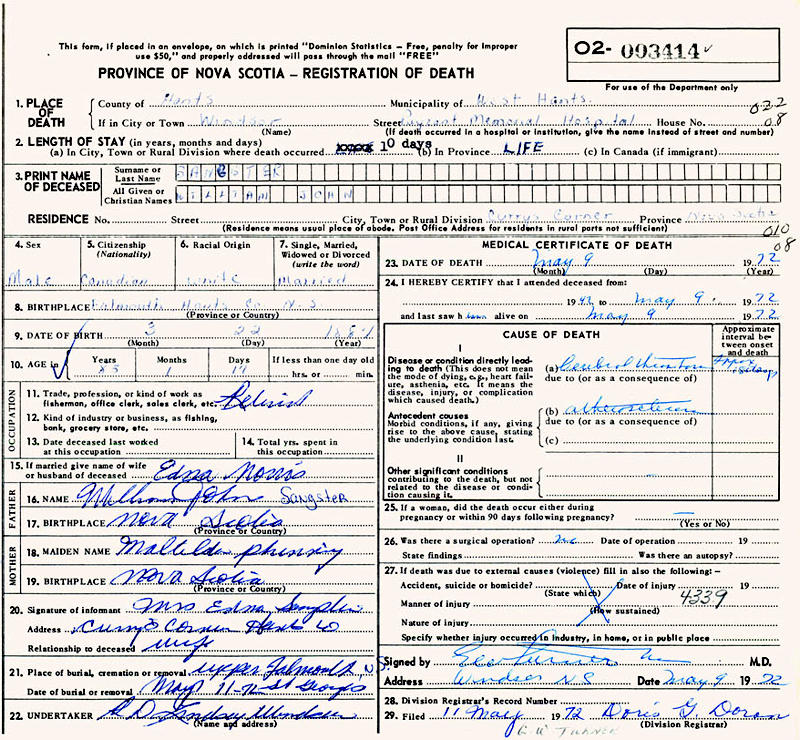 This form, if placed in an envelope, on which is printed "Dominion Statistics – Free, penalty for improper
use $50," and properly addressed will pass through the mail "FREE"
PROVINCE OF NOVA SCOTIA – REGISTRATION OF DEATH
O2- 003414
For use of the Department only
1. PLACE OF DEATH
County of Hants Municipality of West Hants.
022
If in City or Town Windsor Street Payzant Memorial Hospital House No. 08
(Name) (If death occurred in a hospital or institution, give the name instead of street and number)
2. LENGTH OF STAY (in years, months and days)
(a) In City, Town or Rural Division where death occurred 10 days (b) In Province LIFE (c) In Canada (if immigrant)
3. PRINT NAME OF DECEASED
Surname or Last Name SANGSTER
All Given or Christian Names WILLIAM JOHN
RESIDENCE No. Street City, Town or Rural Division Currys Corner Province Nova Scotia
(Residence means usual place of abode. Post Office Address for residents in rural parts not sufficient)
010
08
4. Sex 5. Citizenship (Nationality) 6. Racial Origin 7. Single, Married, Widowed or Divorced (write the word)
Male Canadian White Married
8. BIRTHPLACE Falmouth Hants Co N.S
(Province or Country)
9. DATE OF BIRTH 3 22
(Month) (Day) (Year)
10. AGE in Years Months Days If less than one day old
85 1 17 hrs. or min.
OCCUPATION
11. Trade, profession, or kind of work as fisherman, office clerk, sales clerk, etc. Retired
12. Kind of industry or business, as fishing, bank, grocery store, etc.
13. Date deceased last worked at this occupation
14. Total yrs. spent in this occupation
15. If married give name of wife or husband of deceased Edna Norris
FATHER
16. NAME William John Sangster
17. BIRTHPLACE Nova Scotia
(Province or Country)
MOTHER
18. MAIDEN NAME Matilda
19. BIRTHPLACE Nova Scotia
(Province or Country)
20. Signature of informant Mrs Edna Sangster
Address Currys Corner Hants Co
Relationship to deceased wife
21. Place of burial, cremation or removal upper Falmouth N.S.
Date of burial or removal May 11-72 St Georges
22. UNDERTAKER Lindsay Windsor
(Name and address)
MEDICAL CERTIFICATE OF DEATH
23. DATE OF DEATH May 9 1972
(Month) (Day) (Year)
24. I HEREBY CERTIFY that I attended deceased from:
19 to May 9. 1972
and last saw h alive on May 9 1972
CAUSE OF DEATH
Approximate interval between onset and death
I
Disease or condition directly leading to death (This does not mean the mode of dying, e.g., heart failure, asthenia, etc. It means the disease, injury, or complication which caused death.)
(a) Cerebral
due to (or as a consequence of)
Antecedent causes
Morbid conditions, if any, giving rise to the above cause, stating the underlying condition last.
(b)
due to (or as a consequence of)
(c)
II
Other significant conditions contributing to the death, but not related to the disease or condition causing it.
25. If a woman, did the death occur either during pregnancy or within 90 days following pregnancy? —
(Yes or No)
26. Was there a surgical operation? no Date of operation 19
State findings Was there an autopsy?
27. If death was due to external causes (violence) fill in also the following:–
Accident, suicide or homicide? Date of injury 19
(State which)
4339
Manner of injury
(How sustained)
Nature of injury
Specify whether injury occurred in industry, in home, or in public place
Signed by M.D.
Address Windsor N.S Date May 9 1972
28. Division Registrar's Record Number
29. Filed 11 May 1972 Doris G. Doran
(Division Registrar)
G.W TURNER